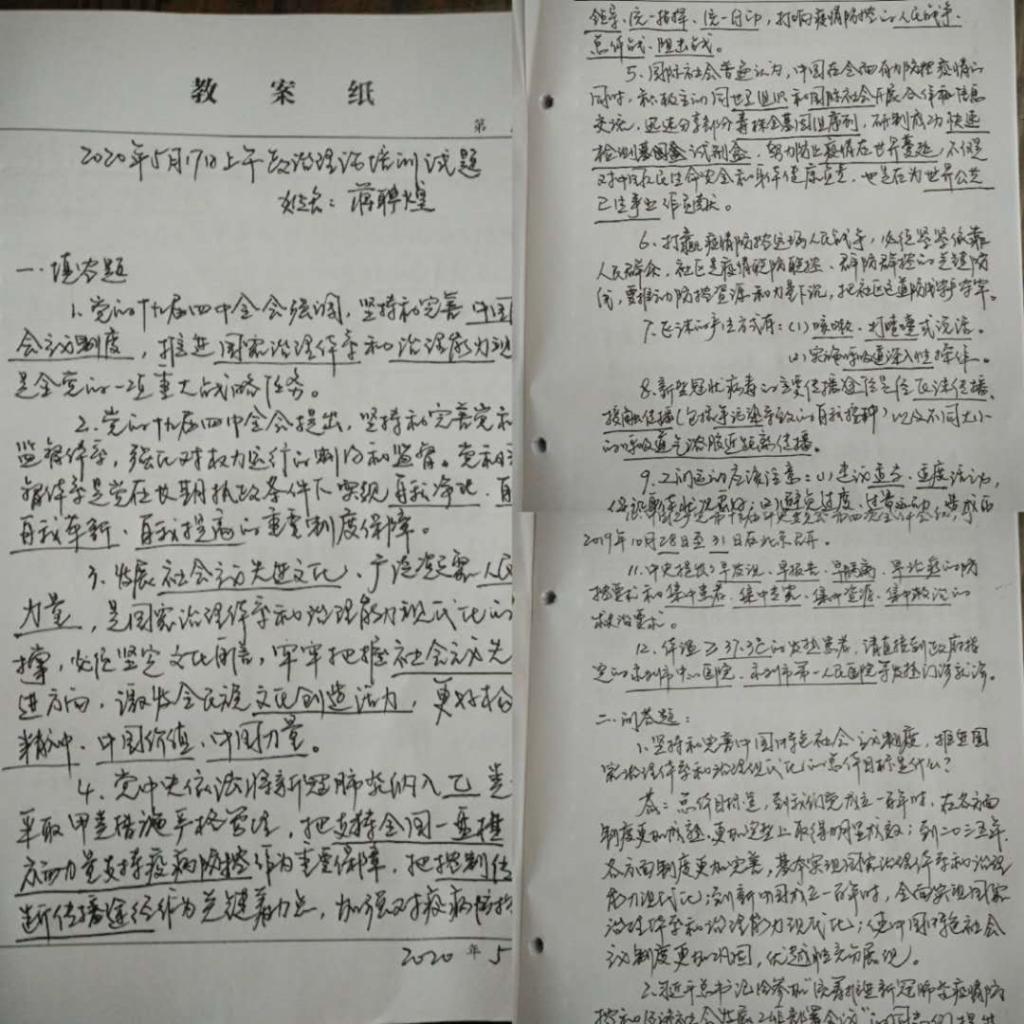 教 案 纸
第
2020年5月17日上午政治理论培训试题
姓名：蒋聘煌
一、填空题
1、党的十九届四中全会强调，坚持和完善中国
会主义制度，推进国家治理体系和治理能力现
是全党的一项重大战略任务。
2、党的十九届四中全会提出，坚持和完善党和
监督体系，强化对权力运行的制约和监督。党和
督体系是党在长期执政条件下实现自我净化、自
自我革新、自我提高的重要制度保障。
3、发展社会主义先进文化、广泛凝聚人民
力量，是国家治理体系和治理能力现代化的
撑，必须坚定文化自信，牢牢把握社会主义先
进方向，激发全民族文化创造活力，更好构
精神、中国价值、中国力量。
4、党中央依法将新冠肺炎纳入乙类
采取甲类措施严格管理，把支持全国一盘棋
方面力量支持疫病防控作为重要保障，把控制传
断传播途径作为关键着力点，加强对疫病防控
2020 年 5
领导、统一指挥、统一行动，打响疫情防控的人民战争、
总体战、阻击战。
5、国际社会普遍认为，中国在全面有力防控疫情的
同时，积极主动同世卫组织和国际社会开展合作和信息
交流，迅速分享部分毒株全基因组序列，研制成功快速
检测试剂盒，努力防止疫情在世界蔓延，不仅是
对中国人民生命安全和身体健康负责，也是在为世界公共
卫生事业作贡献。
6、打赢疫情防控这场人民战争，必须紧紧依靠
人民群众，社区是疫情联防联控、群防群控的关键防
线，要推动防控资源和力量下沉，把社区这道防线守严守牢。
7、飞沫的产生方式有：(1)咳嗽、打喷嚏或说话。
(2)实施呼吸道深入性操作。
8、新型冠状病毒的主要传播途径是经飞沫传播、
接触传播（包括手污染导致的自我接种）以及不同大小
的呼吸道气溶胶近距离传播。
9、工间运动应该注意：(1)建议适当、适度活动，
保证身体状况良好；(2)避免过度、过量运动，造成
2019年10月28日至31日在北京召开。
11、中央提出早发现、早报告、早隔离、早治疗的防
控要求和集中患者、集中专家、集中资源、集中救治的
救治要求。
12、体温≥37.3℃的发热患者，请直接到政府指
定的永州市中心医院、永州市第一人民医院等发热门诊就诊。
二、问答题：
1、坚持和完善中国特色社会主义制度，推进国
家治理体系和治理现代化的总体目标是什么？
答：总体目标是，到我们党成立一百年时，在各方面
制度更加成熟、更加定型上取得明显成效；到二〇三五年，
各方面制度更加完善，基本实现国家治理体系和治理
能力现代化；到新中国成立一百年时，全面实现国家
治理体系和治理能力现代化；使中国特色社会
主义制度更加巩固，优越性充分展现。
2、习近平总书记给参加“统筹推进新冠肺炎疫情防
控和经济社会发展工作部署会议”的同志们提出